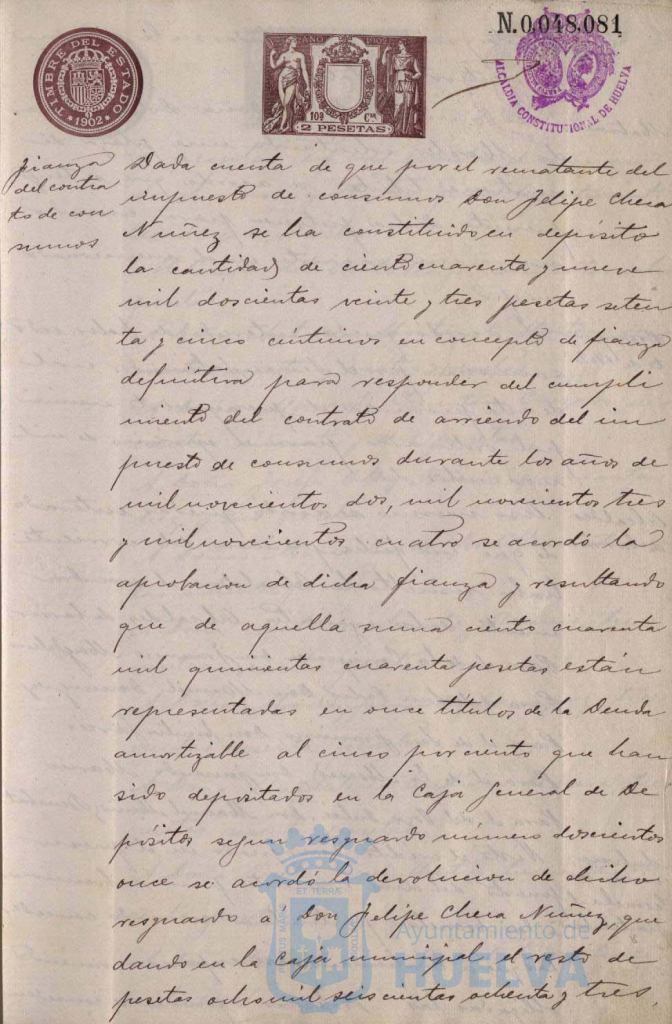 N.0,048,081
TIMBRE DEL ESTADO
1902
10ª Cse
2 PESETAS
ALCALDIA CONSTITUCIONAL DE HUELVA
fianza
del contra
to de con
sumos
Dada cuenta de que por el rematante del
impuesto de consumos Don Felipe Checa
Nuñez se ha constituido en depósito
la cantidad de ciento cuarenta y nueve
mil doscientas veinte y tres pesetas seten
ta y cinco céntimos en concepto de fianza
definitiva para responder del cumpli
miento del contrato de arriendo del im
puesto de consumos durante los años de
mil novecientos dos, mil novecientos tres
y mil novecientos cuatro se acordó la
aprobacion de dicha fianza y resultando
que de aquella suma ciento cuarenta
mil quinientas cuarenta pesetas están
representadas en once títulos de la Deuda
amortizable al cinco por ciento que han
sido depositados en la Caja General de De
pósitos segun resguardo número doscientos
once se acordó la devolucion de dicho
resguardo a Don Felipe Checa Nuñez, que
dando en la Caja municipal el resto de
pesetas ocho mil seiscientas ochenta y tres,
Ayuntamiento de
HUELVA